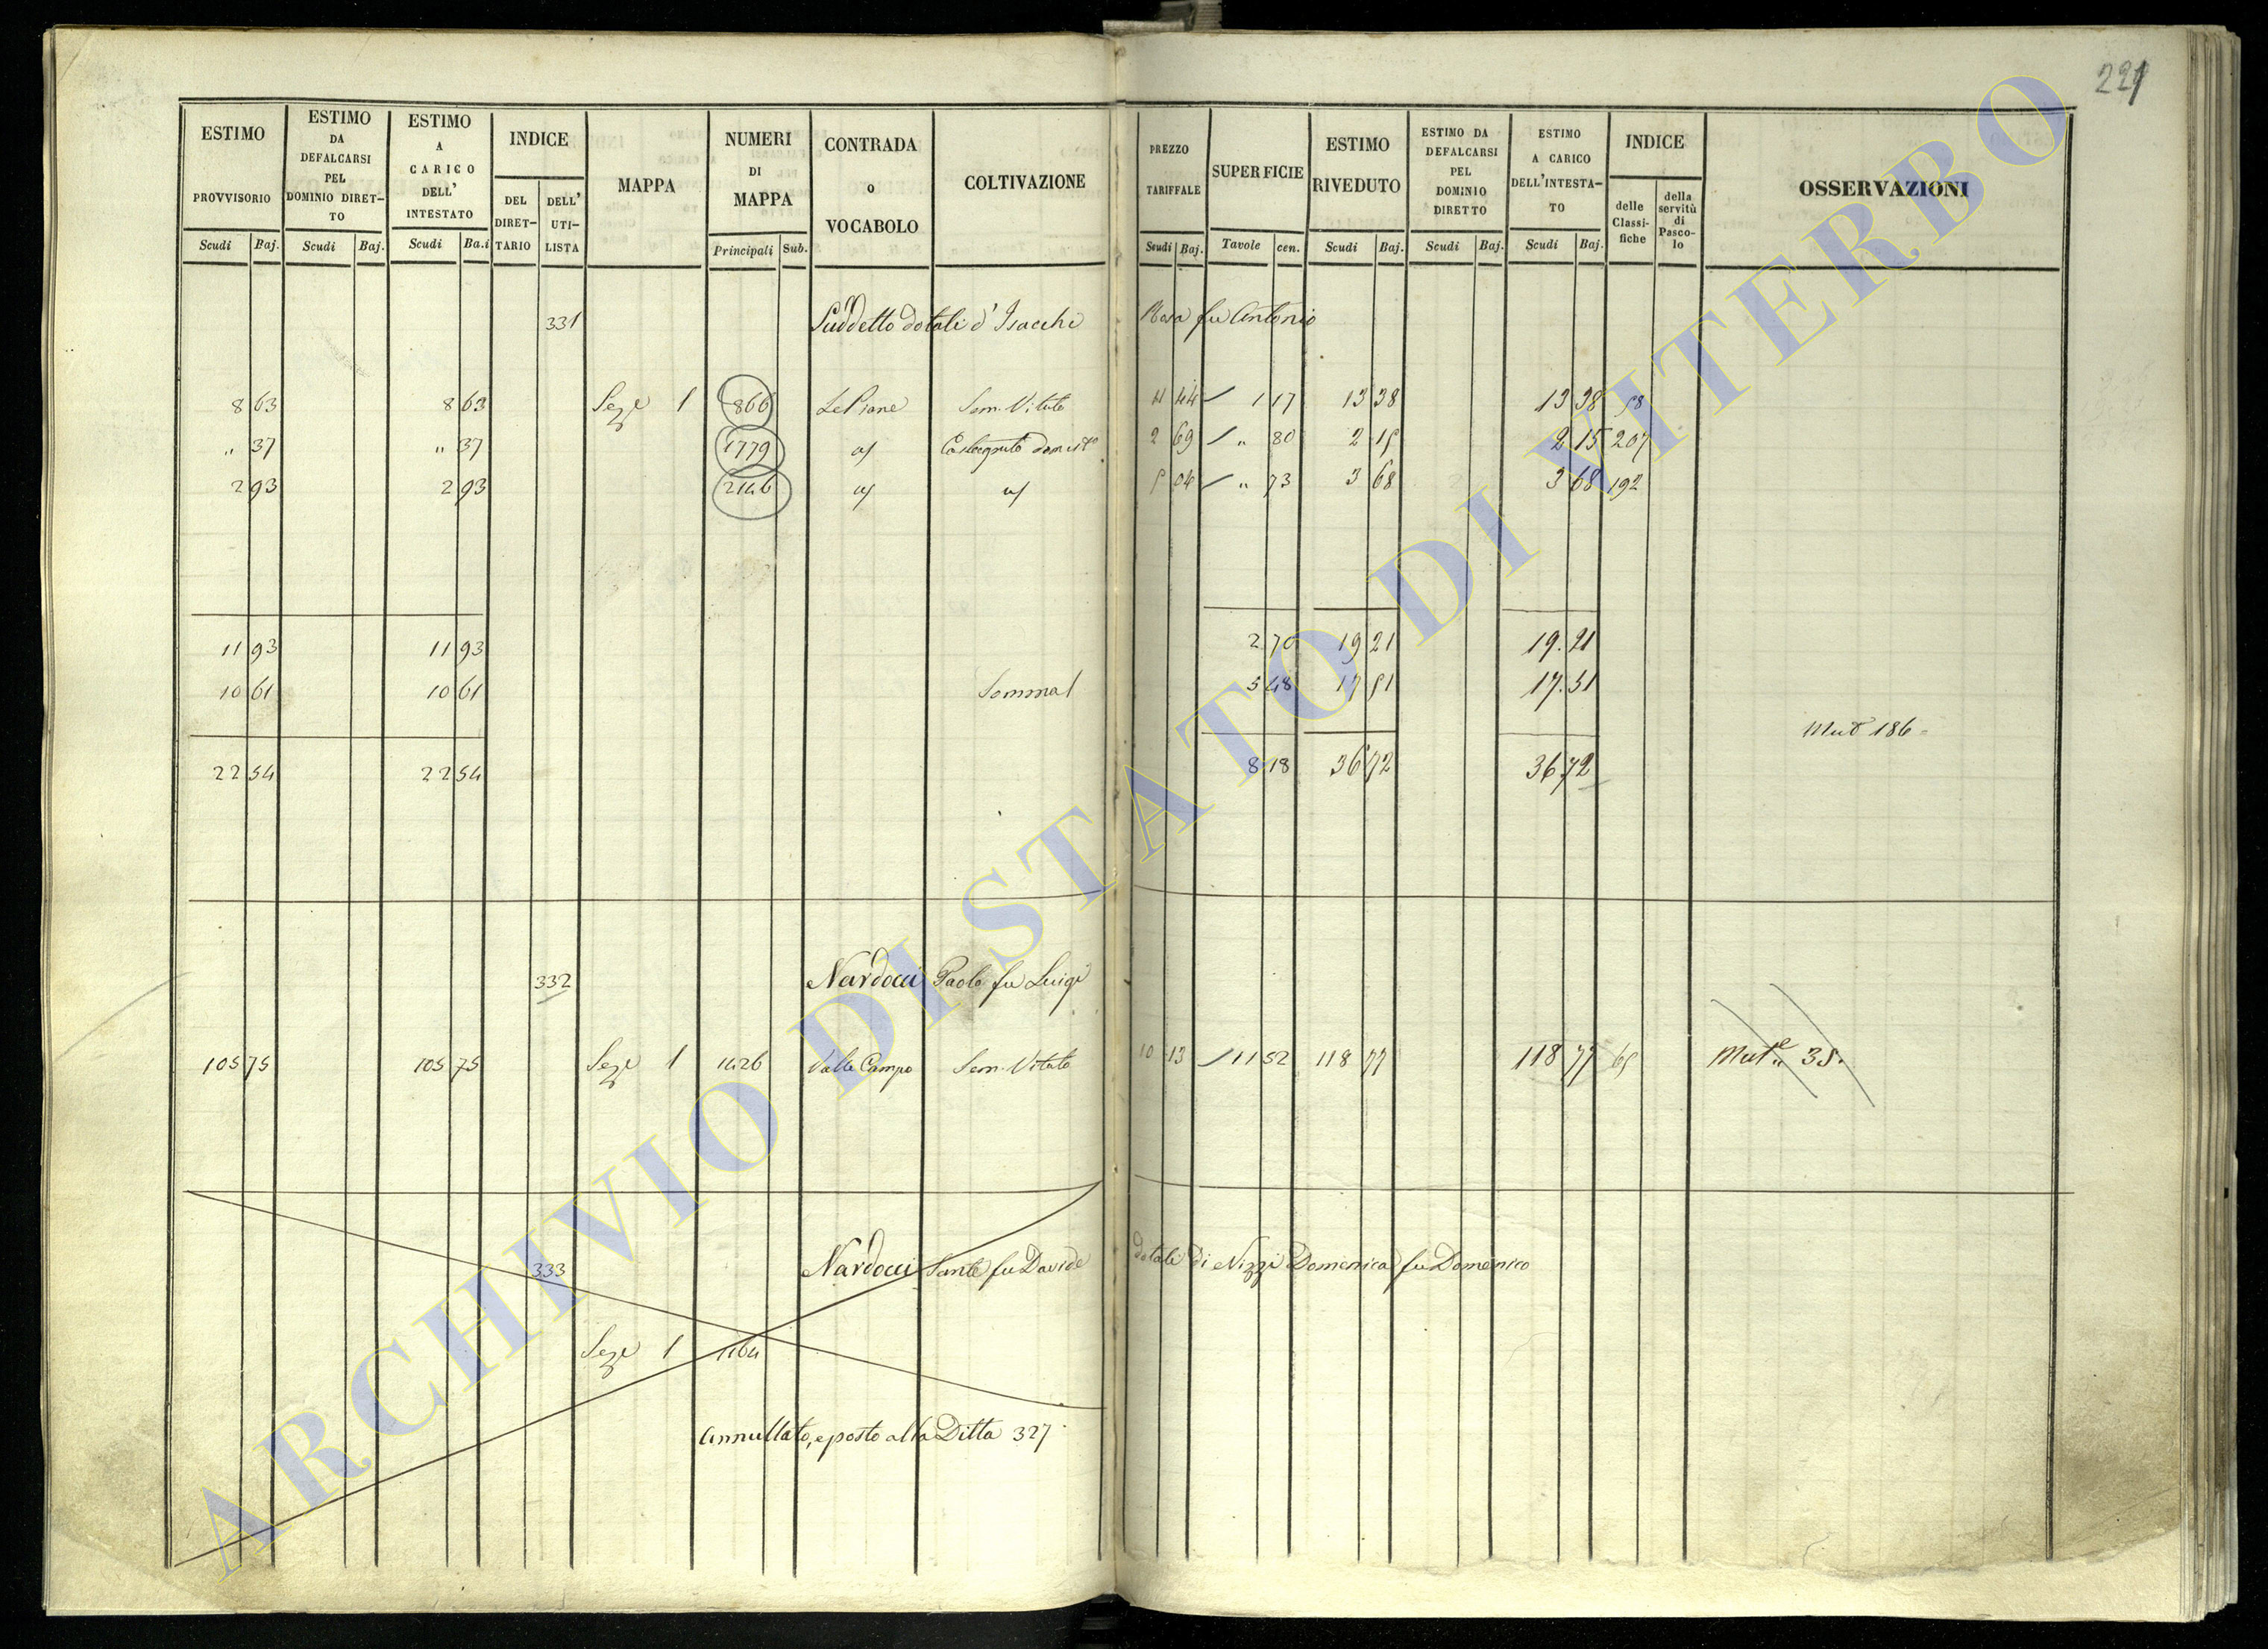 221
ESTIMO PROVVISORIO Scudi Baj.
ESTIMO DA DEFALCARSI PEL DOMINIO DIRET-TO Scudi Baj.
ESTIMO A CARICO DELL' INTESTATO Scudi Ba.i
INDICE DEL DIRET-TARIO DELL' UTI-LISTA
MAPPA
NUMERI DI MAPPA Principali Sub.
CONTRADA O VOCABOLO
COLTIVAZIONE
PREZZO TARIFFALE Scudi Baj.
SUPERFICIE Tavole cen.
ESTIMO RIVEDUTO Scudi Baj.
ESTIMO DA DEFALCARSI PEL DOMINIO DIRETTO Scudi Baj.
ESTIMO A CARICO DELL'INTESTA-TO Scudi Baj.
INDICE delle Classi-fiche della servitù di Pasco-lo
OSSERVAZIONI
331 Suddetto dotali d'Isacchi Rosa fu Antonio
8 63 8 63 Sez.e 1 866 Le Piane Sem. Vitato 11 44 1 17 13 38 13 38 58
" 37 " 37 1779 Castagneto domest.o 2 69 " 80 2 15 2 15 207
2 93 2 93 2146 5 04 " 73 3 68 3 68 192
11 93 11 93 2 70 19 21 19. 21
10 61 10 61 Somma 1 5 48 17 51 17. 51
Mut 186
22 54 22 54 8 18 36 72 36 72
332 Nardocci Paolo fu Luigi
105 75 105 75 Sez.e 1 1426 Valle Campo Sem. Vitato 10 13 11 52 118 77 118 77 65 Mut.e 35.
333 Nardocci Sante fu Davide dotali di Nizzi Domenica fu Domenico
Sez.e 1 1164
Annullato, e posto alla Ditta 327
ARCHIVIO DI STATO DI VITERBO